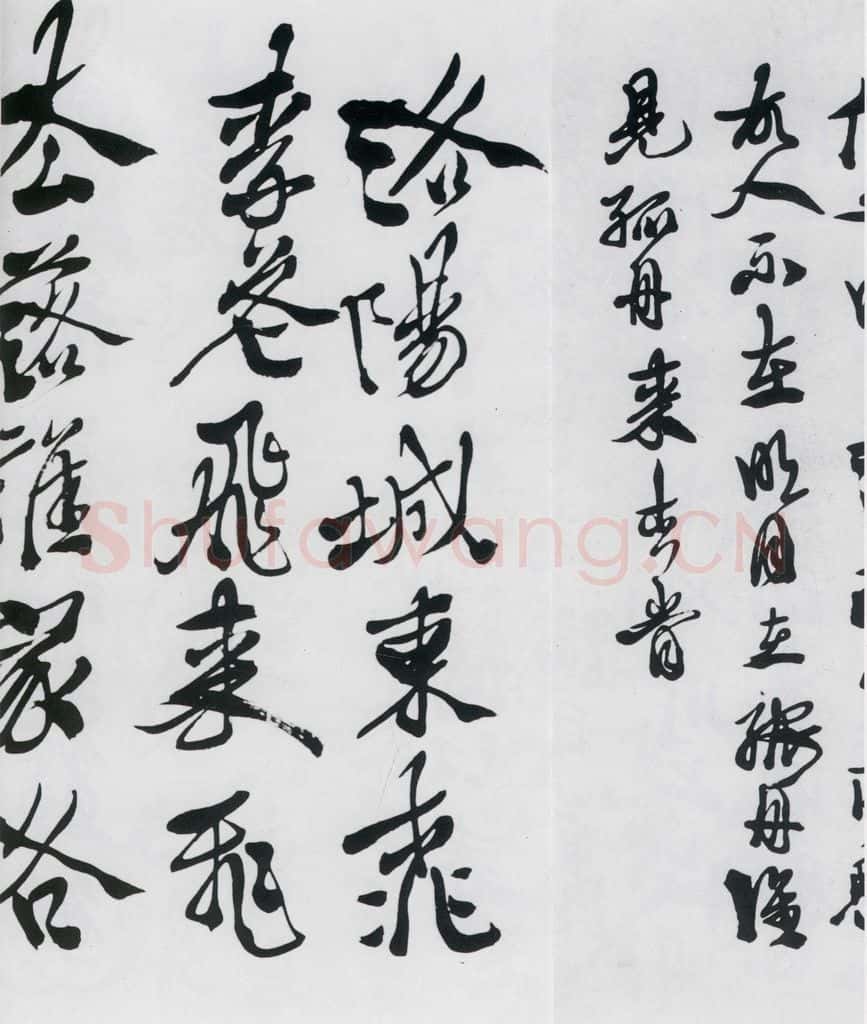 故人不在明月在孤舟誰
見孤舟来去時
洛陽城東桃
李花飛来飛
去落誰家洛
Shufawang.CN